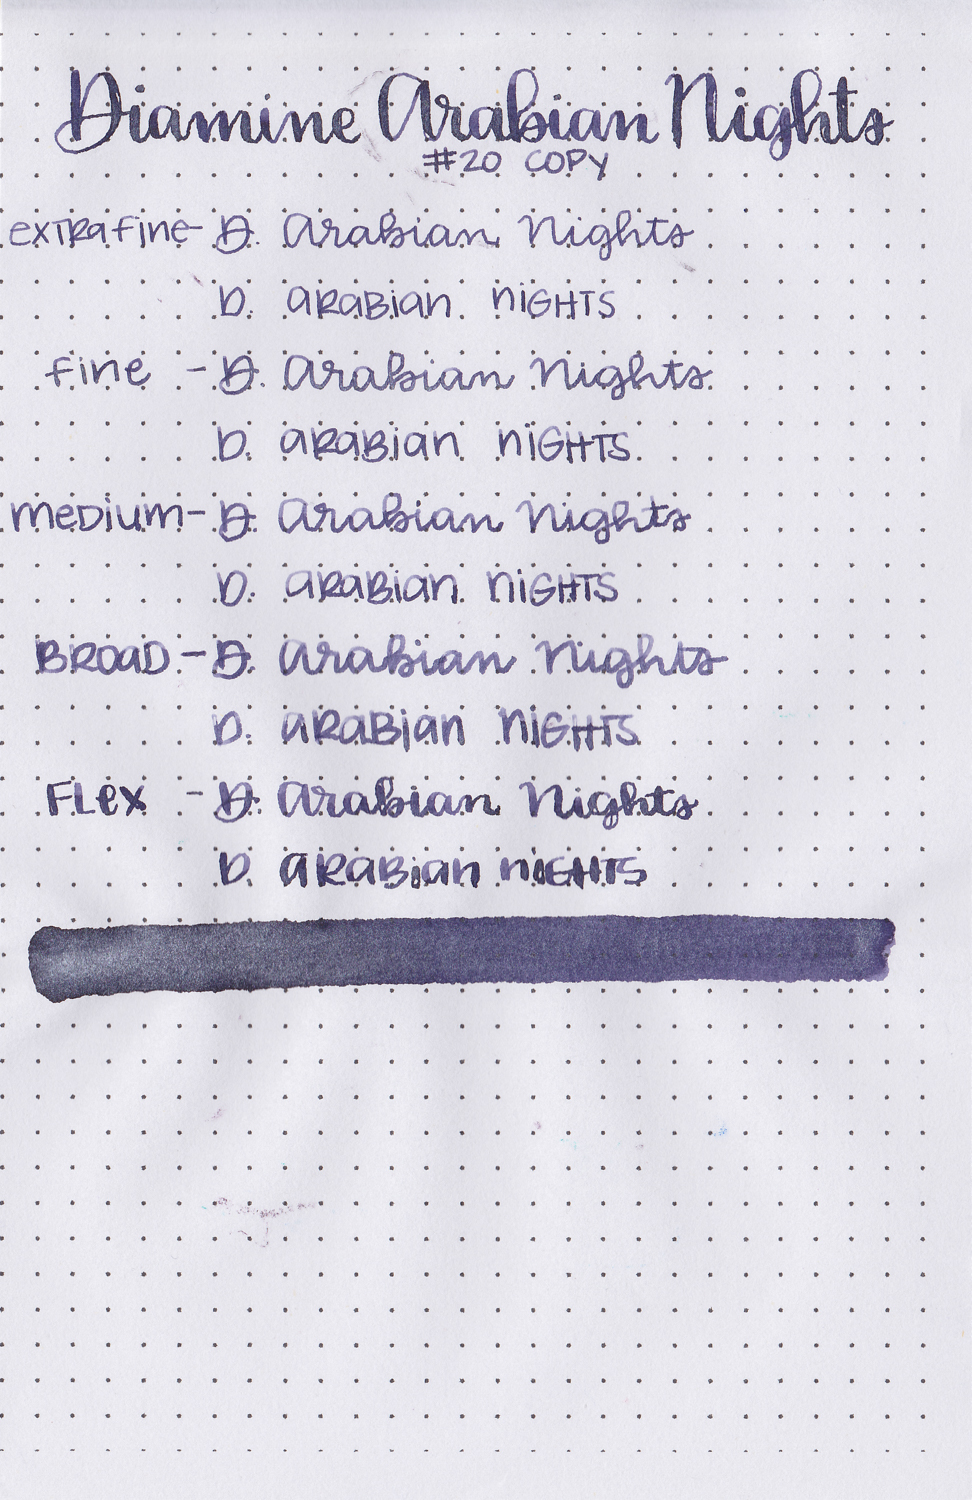 Diamine Arabian Nights
#20 COPY
extrafine - D. Arabian Nights
D. arabian nights
fine - D. Arabian Nights
D. arabian nights
medium - D. Arabian Nights
D. arabian nights
Broad - D. Arabian Nights
D. arabian nights
Flex - D. Arabian Nights
D. arabian nights